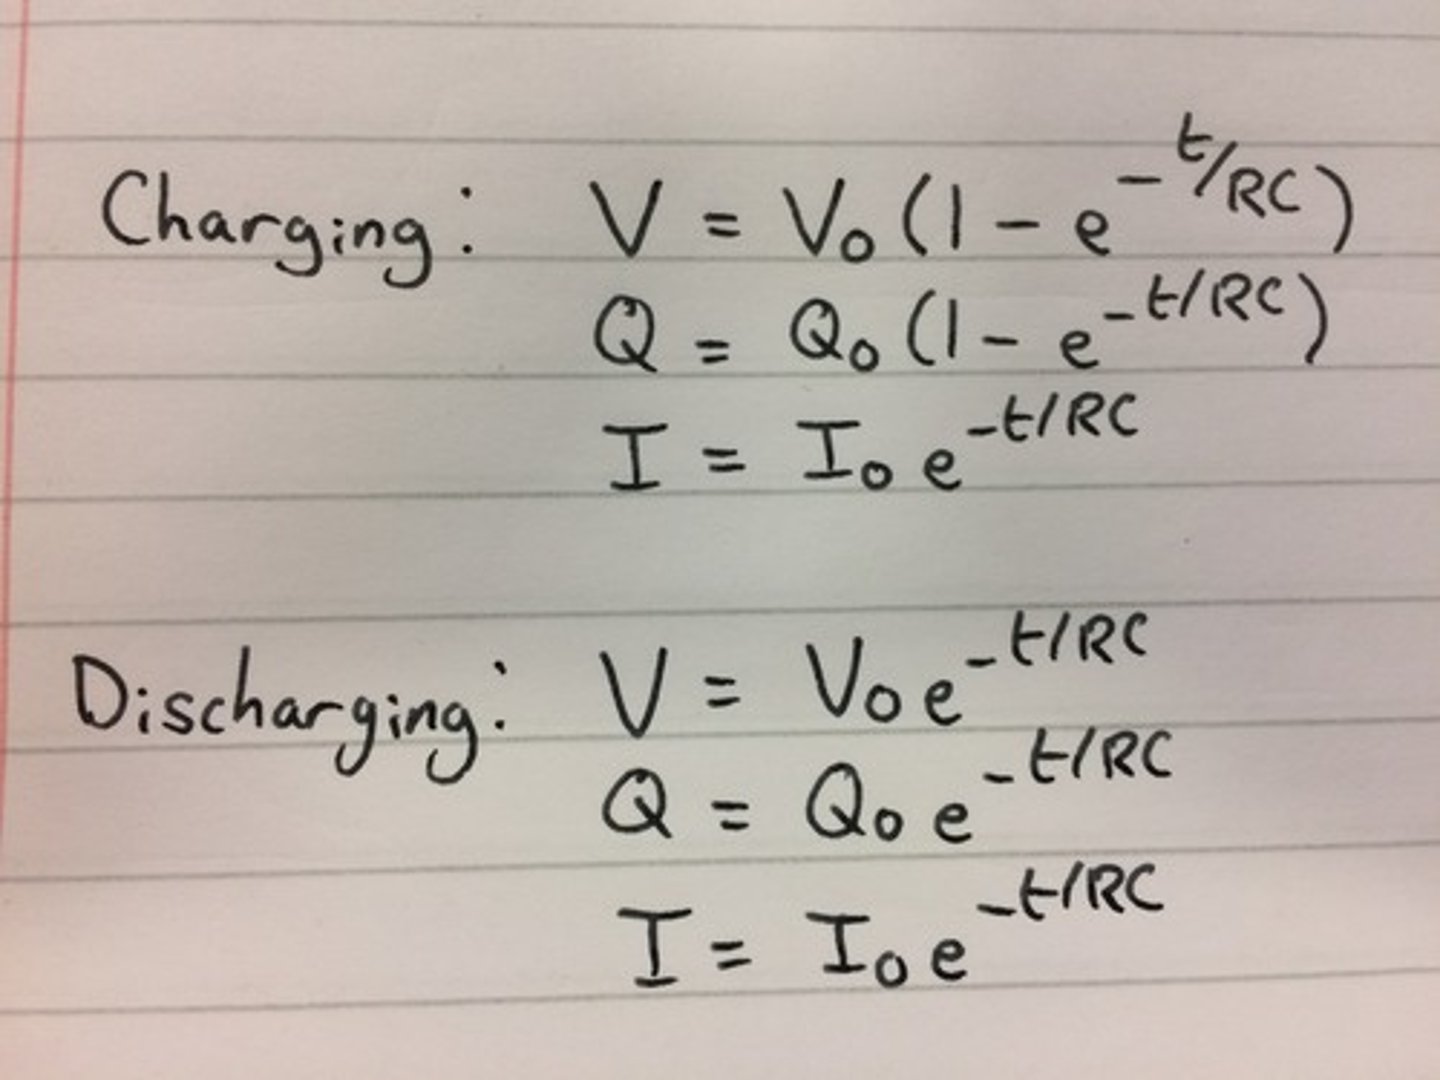 Charging: V = V₀ (1 - e^(-t/RC))
Q = Q₀ (1 - e^(-t/RC))
I = I₀ e^(-t/RC)
Discharging: V = V₀ e^(-t/RC)
Q = Q₀ e^(-t/RC)
I = I₀ e^(-t/RC)